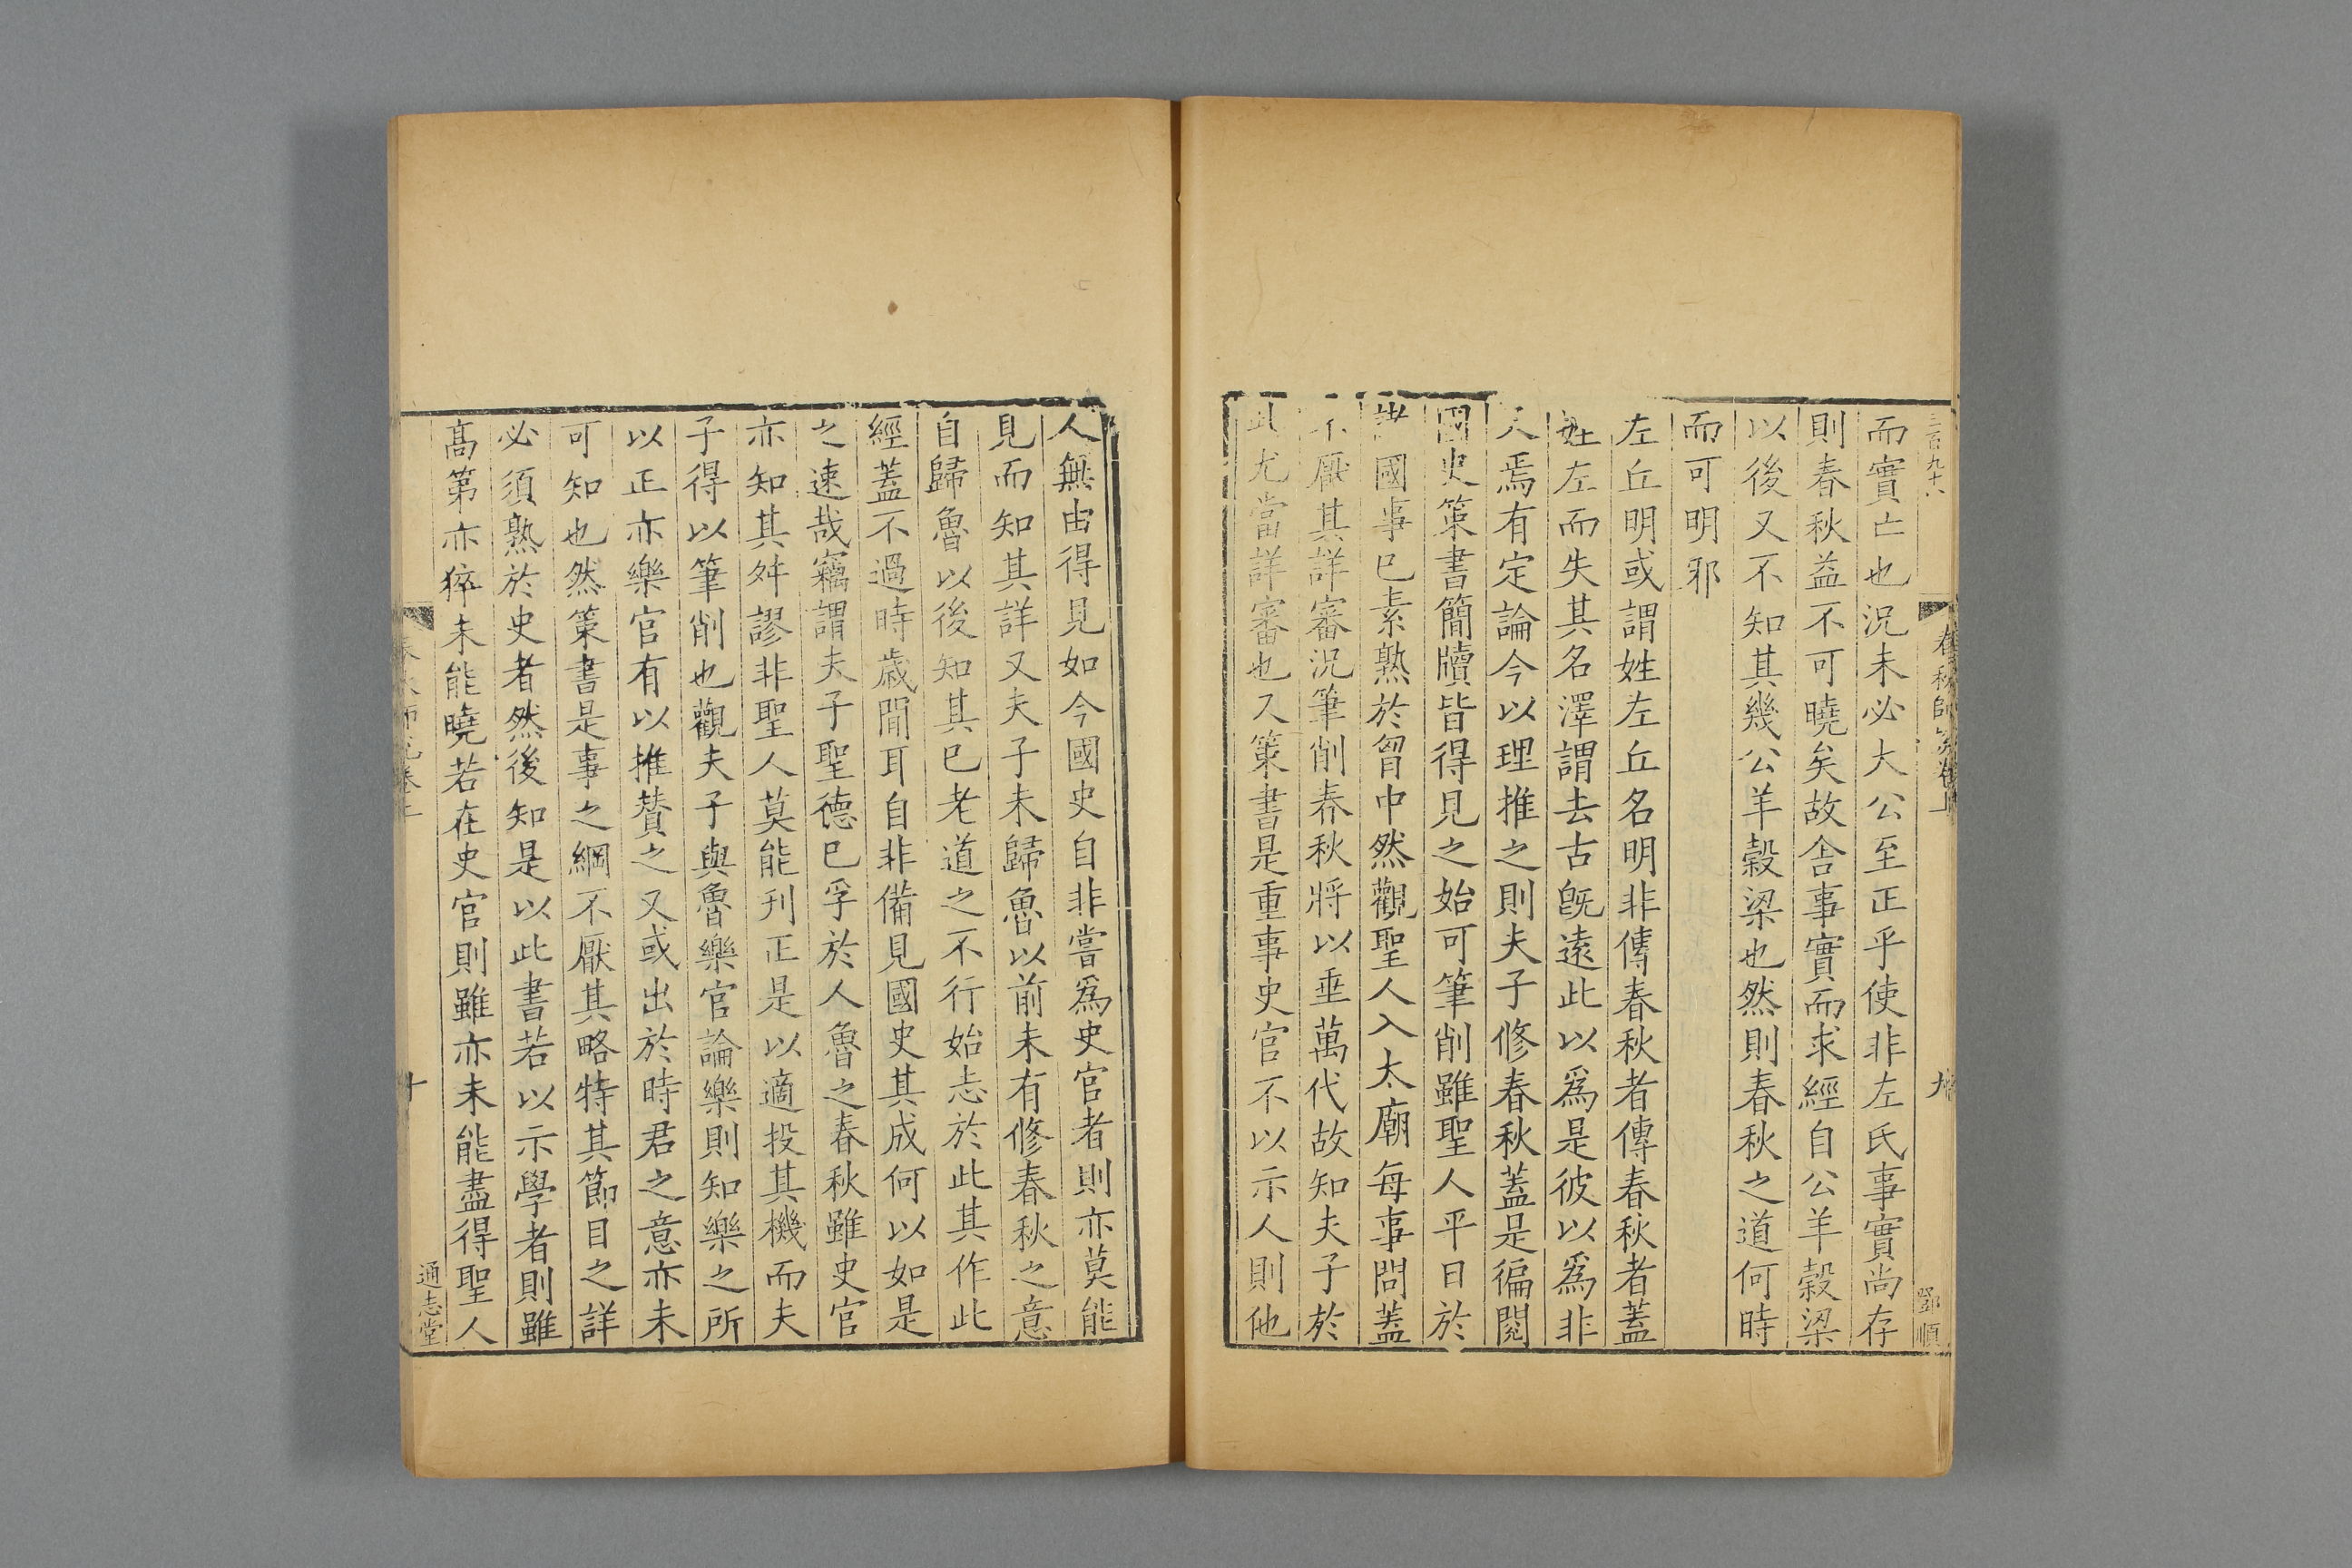 三百九十八
春秋師說卷上
九
鄧順
而實亡也況未必大公至正乎使非左氏事實尚存
則春秋益不可曉矣故舍事實而求經自公羊穀梁
以後又不知其幾公羊穀梁也然則春秋之道何時
而可明邪
左丘明或謂姓左丘名明非傳春秋者傳春秋者蓋
姓左而失其名澤謂去古旣遠此以爲是彼以爲非
又焉有定論今以理推之則夫子修春秋蓋是徧閱
國史策書簡牘皆得見之始可筆削雖聖人平日於
諸國事已素熟於胷中然觀聖人入太廟每事問蓋
不厭其詳審況筆削春秋將以垂萬代故知夫子於
此尤當詳審也又策書是重事史官不以示人則他
人無由得見如今國史自非嘗爲史官者則亦莫能
見而知其詳又夫子未歸魯以前未有修春秋之意
自歸魯以後知其已老道之不行始志於此其作此
經蓋不過時歲閒耳自非備見國史其成何以如是
之速哉竊謂夫子聖德已孚於人魯之春秋雖史官
亦知其舛謬非聖人莫能刋正是以適投其機而夫
子得以筆削也觀夫子與魯樂官論樂則知樂之所
以正亦樂官有以推贊之又或出於時君之意亦未
可知也然策書是事之綱不厭其略特其節目之詳
必須熟於史者然後知是以此書若以示學者則雖
高第亦猝未能曉若在史官則雖亦未能盡得聖人
春秋師說卷上
十
通志堂